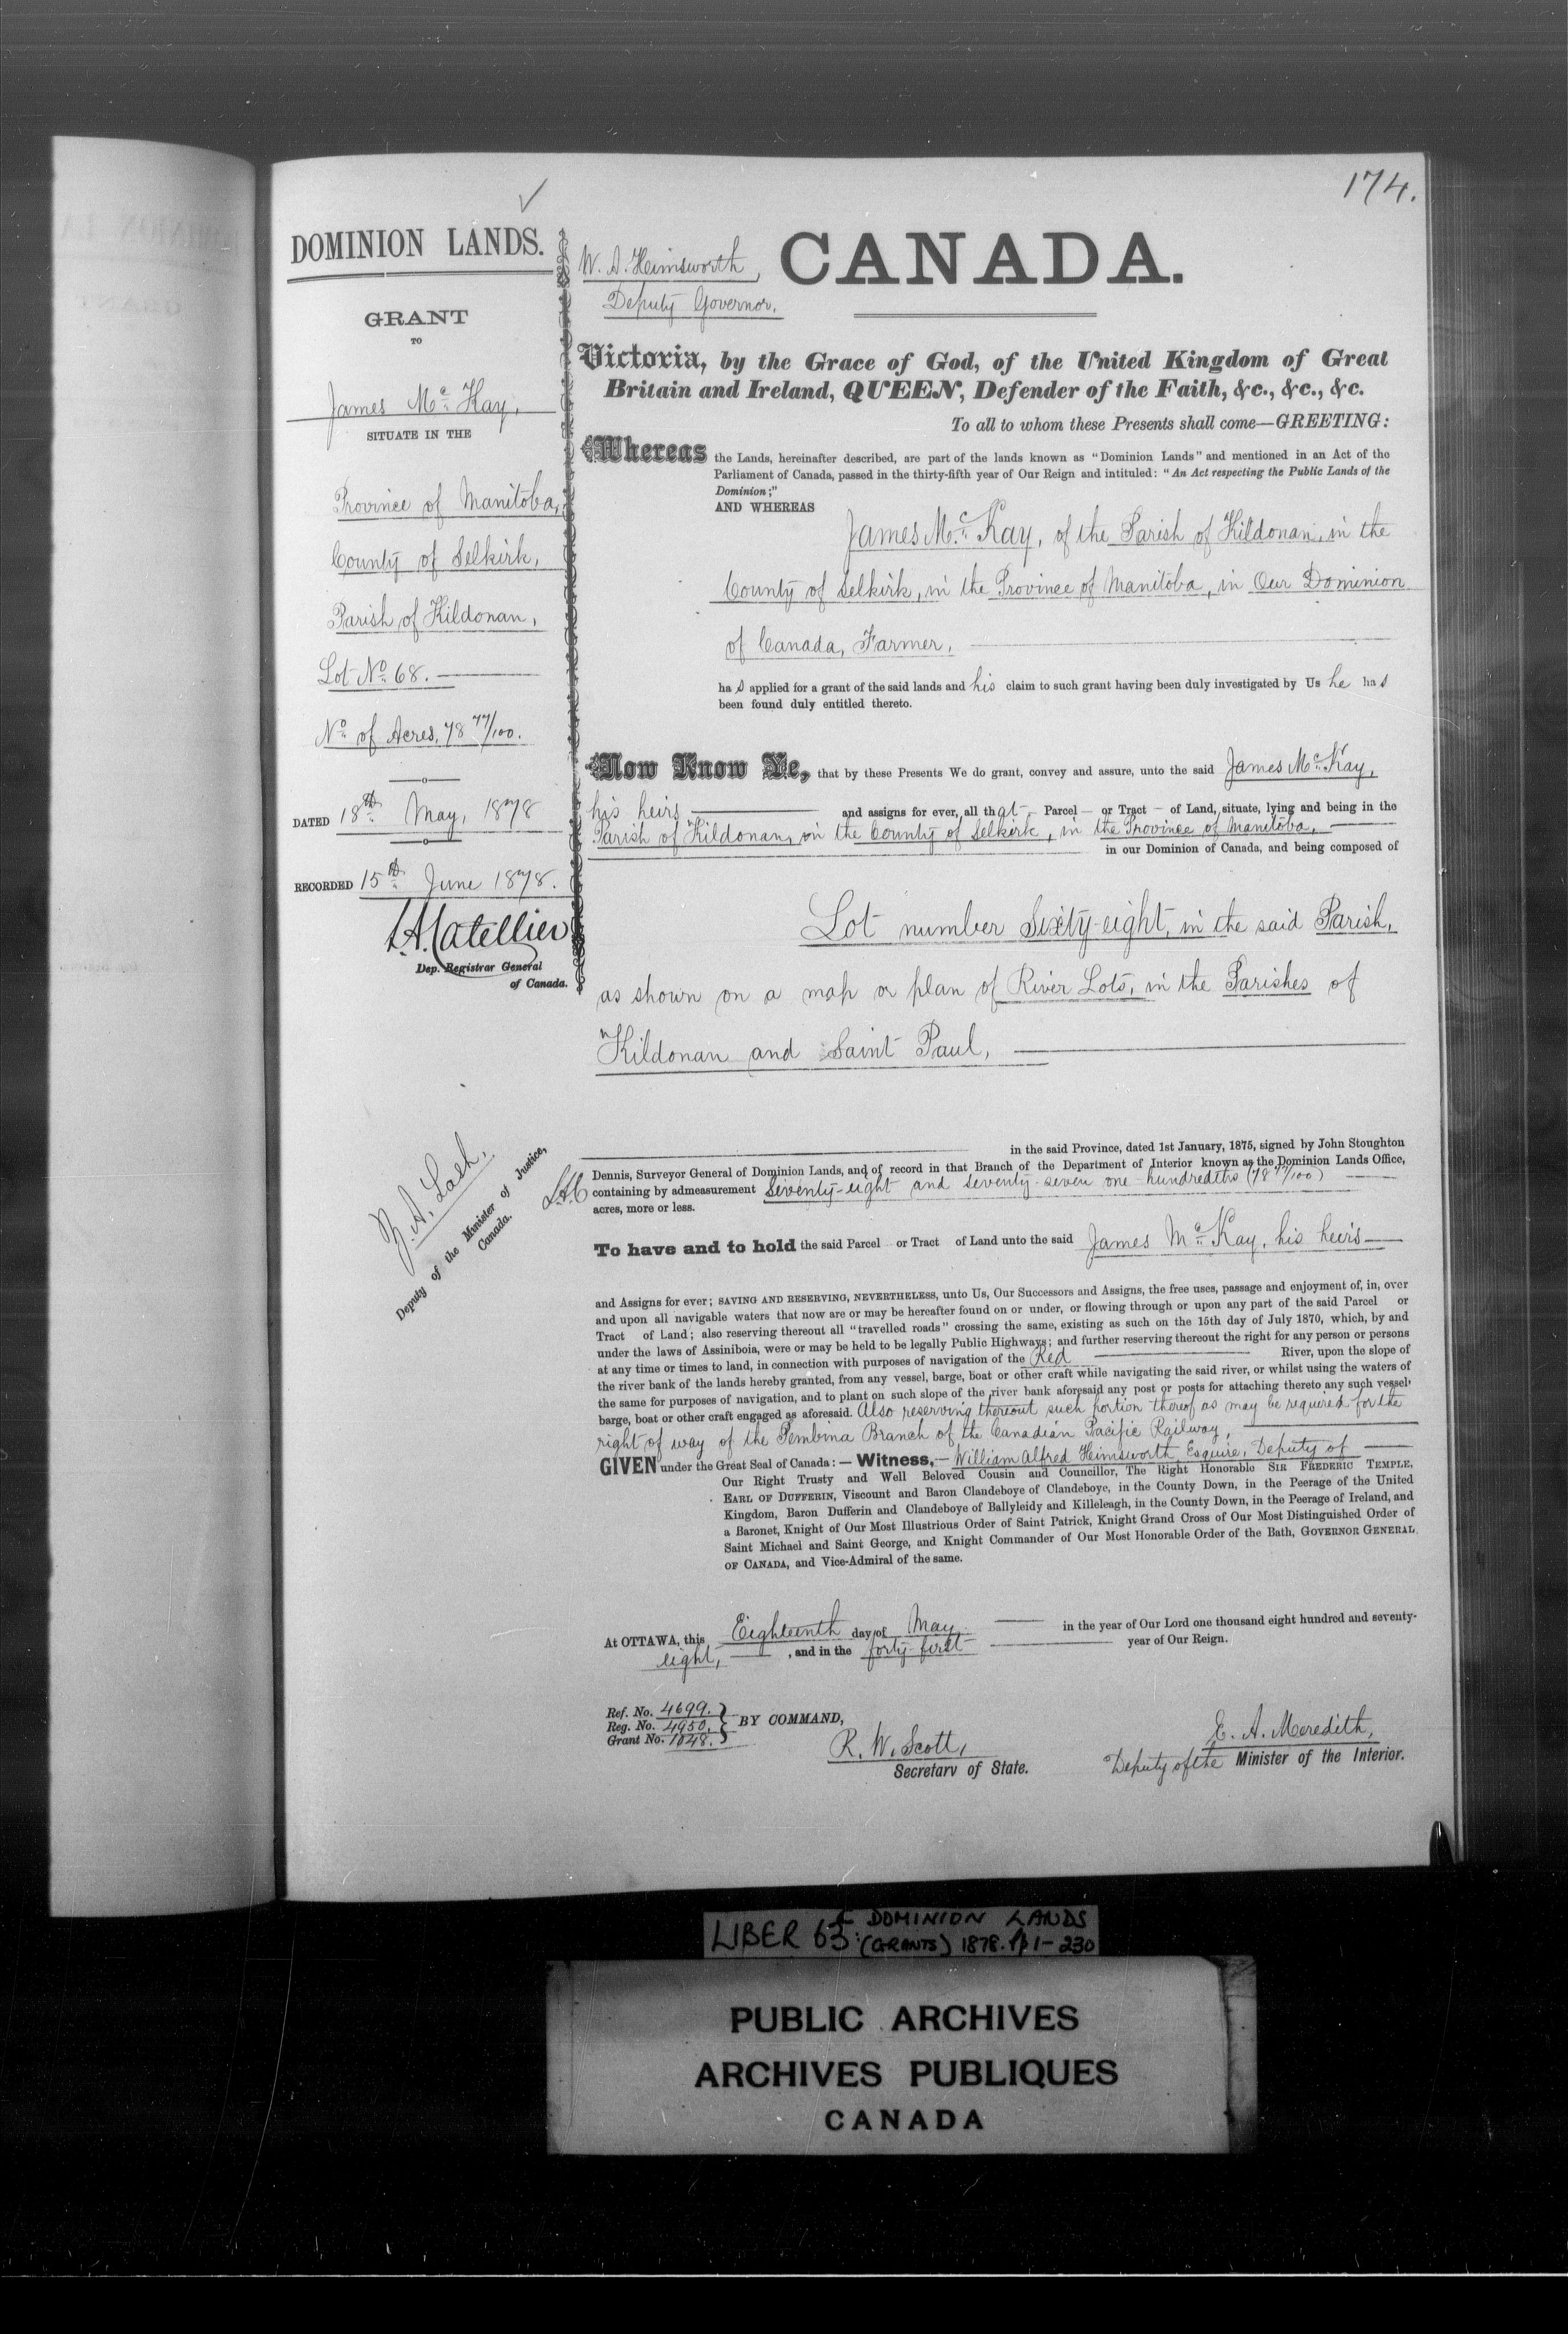 174.
DOMINION LANDS.
GRANT
TO
James Mc Kay,
SITUATE IN THE
Province of Manitoba,
County of Selkirk,
Parish of Kildonan,
Lot No 68.
No of Acres, 78 77/100.
DATED 18th May, 1878
RECORDED 15th June 1878.
L.A. Catellier
Dep. Registrar General
of Canada.
Z. A. Lash,
Deputy of the Minister of Justice,
Canada.
W. A. Himsworth,
Deputy Governor.
CANADA.
Victoria, by the Grace of God, of the United Kingdom of Great
Britain and Ireland, QUEEN, Defender of the Faith, &c., &c., &c.
To all to whom these Presents shall come—GREETING:
Whereas the Lands, hereinafter described, are part of the lands known as "Dominion Lands" and mentioned in an Act of the
Parliament of Canada, passed in the thirty-fifth year of Our Reign and intituled: "An Act respecting the Public Lands of the
Dominion;"
AND WHEREAS
James Mc Kay, of the Parish of Kildonan, in the
County of Selkirk, in the Province of Manitoba, in Our Dominion
of Canada, Farmer,
has applied for a grant of the said lands and his claim to such grant having been duly investigated by Us he has
been found duly entitled thereto.
Now Know Ye, that by these Presents We do grant, convey and assure, unto the said James Mc Kay,
his heirs and assigns for ever, all that Parcel or Tract of Land, situate, lying and being in the
Parish of Kildonan, in the County of Selkirk, in the Province of Manitoba,
in our Dominion of Canada, and being composed of
Lot number Sixty-eight, in the said Parish,
as shown on a map or plan of River Lots, in the Parishes of
Kildonan and Saint Paul,
in the said Province, dated 1st January, 1875, signed by John Stoughton
Dennis, Surveyor General of Dominion Lands, and of record in that Branch of the Department of Interior known as the Dominion Lands Office,
LAC containing by admeasurement Seventy-eight and seventy-seven one-hundredths (78 77/100)
acres, more or less.
To have and to hold the said Parcel or Tract of Land unto the said James Mc Kay, his heirs
and Assigns for ever; SAVING AND RESERVING, NEVERTHELESS, unto Us, Our Successors and Assigns, the free uses, passage and enjoyment of, in, over
and upon all navigable waters that now are or may be hereafter found on or under, or flowing through or upon any part of the said Parcel or
Tract of Land; also reserving thereout all "travelled roads" crossing the same, existing as such on the 15th day of July 1870, which, by and
under the laws of Assiniboia, were or may be held to be legally Public Highways; and further reserving thereout the right for any person or persons
at any time or times to land, in connection with purposes of navigation of the Red River, upon the slope of
the river bank of the lands hereby granted, from any vessel, barge, boat or other craft while navigating the said river, or whilst using the waters of
the same for purposes of navigation, and to plant on such slope of the river bank aforesaid any post or posts for attaching thereto any such vessel,
barge, boat or other craft engaged as aforesaid. Also reserving thereout such portion thereof as may be required for the
right of way of the Pembina Branch of the Canadian Pacific Railway,
GIVEN under the Great Seal of Canada:— Witness,— William Alfred Himsworth, Esquire, Deputy of
Our Right Trusty and Well Beloved Cousin and Councillor, The Right Honorable SIR FREDERIC TEMPLE,
EARL OF DUFFERIN, Viscount and Baron Clandeboye of Clandeboye, in the County Down, in the Peerage of the United
Kingdom, Baron Dufferin and Clandeboye of Ballyleidy and Killeleagh, in the County Down, in the Peerage of Ireland, and
a Baronet, Knight of Our Most Illustrious Order of Saint Patrick, Knight Grand Cross of Our Most Distinguished Order of
Saint Michael and Saint George, and Knight Commander of Our Most Honorable Order of the Bath, GOVERNOR GENERAL
OF CANADA, and Vice-Admiral of the same.
At OTTAWA, this Eighteenth day of May in the year of Our Lord one thousand eight hundred and seventy-
eight, , and in the forty-first year of Our Reign.
Ref. No. 4699.
Reg. No. 4950.
Grant No. 1848.
BY COMMAND,
R. W. Scott,
Secretary of State.
E. A. Meredith,
Deputy of the Minister of the Interior.
LIBER 63: DOMINION LANDS
(GRANTS) 1878. pp 1-230
PUBLIC ARCHIVES
ARCHIVES PUBLIQUES
CANADA